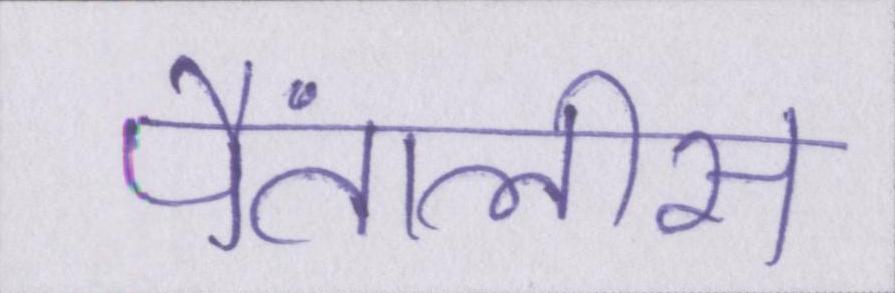 पैंतालीस